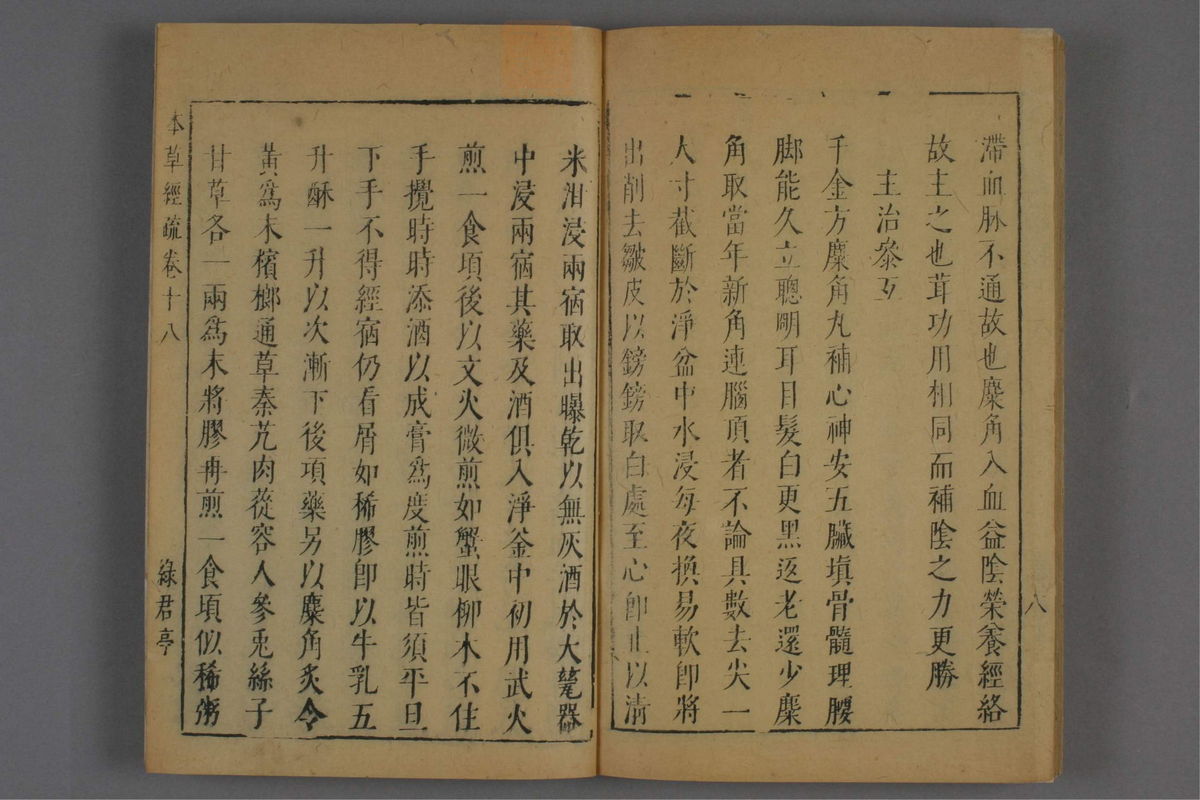 滯血脉不通故也麋角入血益陰榮養經絡
故主之也茸功用相同而補陰之力更勝
主治叅互
千金方麋角丸補心神安五臟塡骨髓理腰
脚能久立聰明耳目髮白更黑返老還少麋
角取當年新角連腦頂者不論具數去尖一
大寸截斷於淨盆中水浸每夜換易軟卽將
出削去皺皮以鎊鎊取白處至心卽止以淸
八
米泔浸兩宿取出曝乾以無灰酒於大甆器
中浸兩宿其藥及酒俱入淨釜中初用武火
煎一食頃後以文火微煎如蟹眼柳木不住
手攪時時添酒以成膏爲度煎時皆須平旦
下手不得經宿仍看屑如稀膠卽以牛乳五
升酥一升以次漸下後項藥另以麋角炙令
黃爲末檳榔通草秦艽肉蓯容人參兎絲子
甘草各一兩爲末將膠再煎一食頃似稀粥
本草經疏卷十八
綠君亭